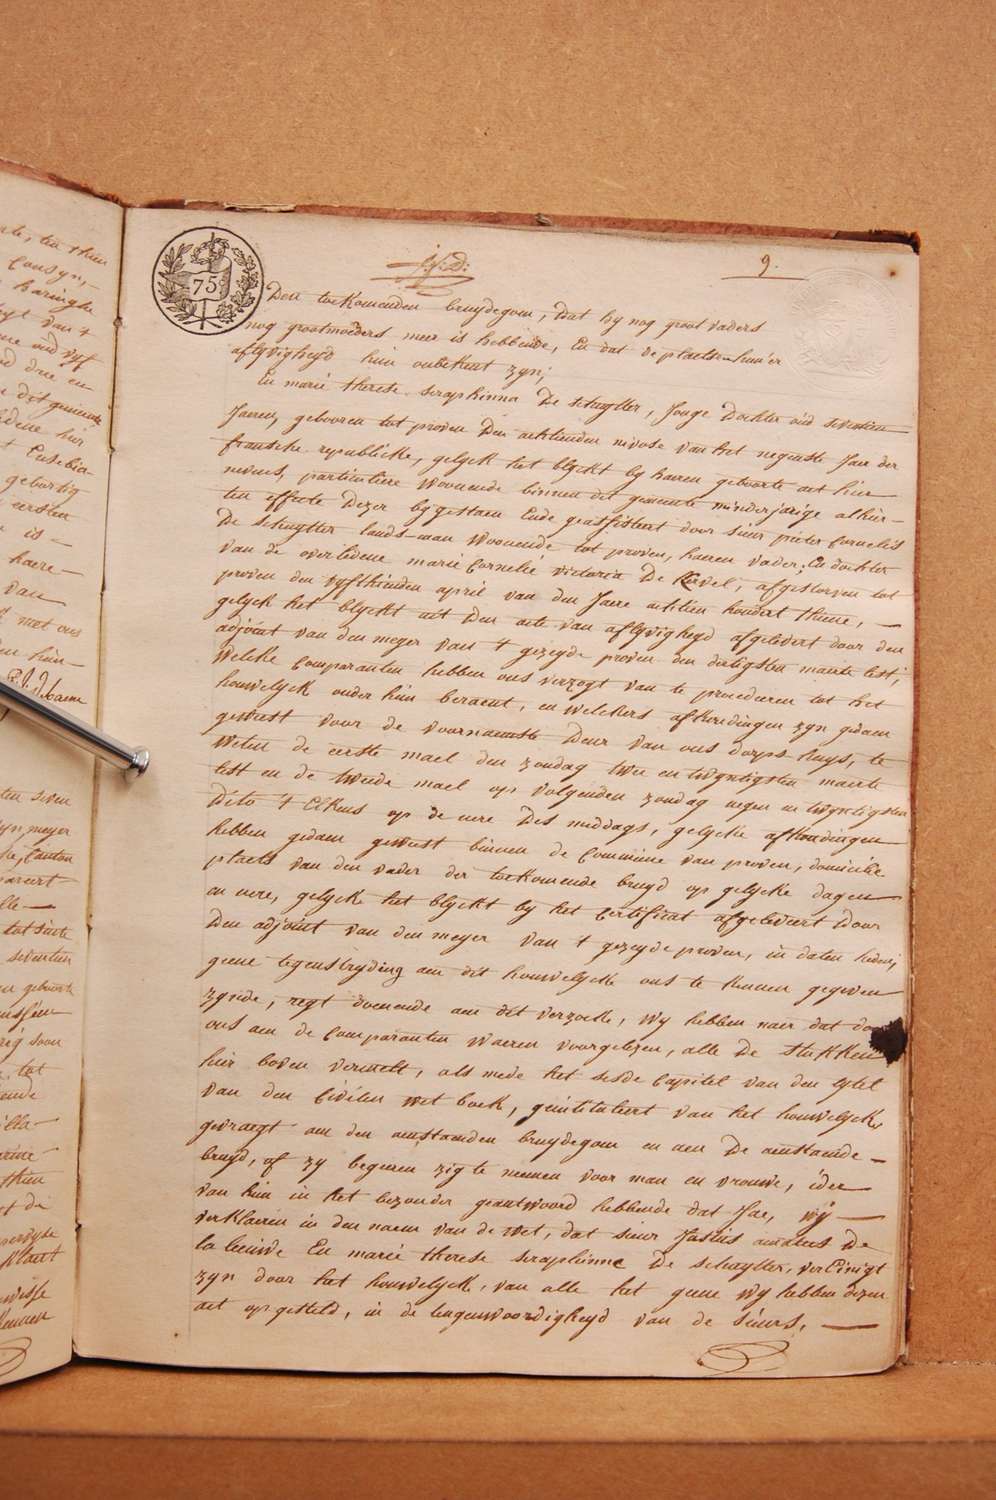 9.
75
Den toekomenden bruydegom, dat hy nog groot vaders
nog grootmoeders meer is hebbende, En dat de plaetsen hun'er
aflyvigheyd hun onbekent zyn;
En marie therese seraphinna De schuytter, Jonge Dochter oud seventien
Jaeren, gebooren tot proven Den achtienden nivose van het negenste Jaer der
fransche republicke, gelyck het blyckt by haeren geboorte act hier
nevens, particuliere Woonende binnen dit gemeente minderjarige alhier
ten effecte Dezer bygestaen Ende geassisteert door sieur pieter Cornelis
De schuytter lands-man Woonende tot proven, haeren vader; En dochter
van de overledene marie Cornelie victoria De Kervel, afgestorven tot
proven den vyfthienden april van den Jaere achtien hondert thiene,
gelyck het blyckt uit Den acte van aflyvigheyd afgelevert door den
adjoint van den meyer van 't gezeyde proven den dertigsten maerte lest;
Welcke Comparanten hebben ons verzogt van te procederen tot het
houwelyck onder hun beraemt, en Welckers afkondingen zyn gedaen
geweest voor de voornaemste Deur van ons dorps huys, te
Weten de eerste mael den zondag twee en twyntigsten maerte
lest en de tweede mael op volgenden zondag negen en twyntigsten
Dito 't Elkens op de uere Des middags, gelycke afkondingen
hebben gedaen geweest binnen de Commune van proven, domicilie
plaets van den vader der toekomende bruyd op gelycke dagen
en uere, gelyck het blyckt by het Certificat afgelevert Door
Den adjoint van den meyer van 't gezeyde proven, in daten heden;
geene tegenstryding aen dit houwelyck ons te kennen gegeven
zynde, regt doenende aen dit verzoeke, Wy hebben naer dat door
ons aen de Comparanten Waeren voorgelezen, alle De stukken
hier boven vermelt, als mede het sesde Capitel van den tytel
van den Civilen Wet boek, geintituleert van het houwelyck,
gevraegt aen den aenstaenden bruydegom en aen De aenstaende
bruyd, of zy begeeren zig te neemen voor man en vrouwe, ider
van hun in het bezonder geantwoord hebbende dat Jae, Wy
verklaeren in den naem van de wet, dat sieur Justus amatus De
la leeuwe En marie therese seraphinne De schuytter, verEinigt
zyn door het houwelyck, van alle het geene Wy hebben dezen
act opgesteld, in de tegenwoordigheyd van de sieurs,